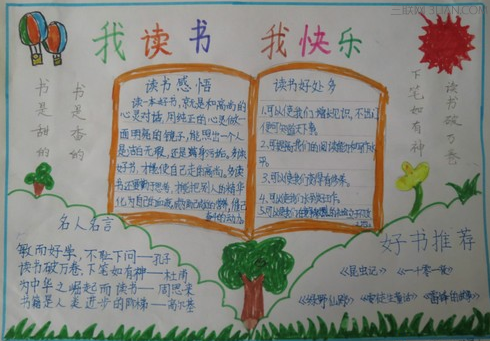 三联网 3LIAN.COM
我读书 我快乐
书是甜的
书是香的
下笔如有神
读书破万卷
读书感悟
读一本好书,就是和高尚的
心灵对话,用纯正的心灵做一
面明亮的镜子,能照出一个人
是洁白无瑕,还是
好书,才能使自己走向高尚。
书还要勤思考,才能把别人的精华
化为自己的
读书好处多
1.可以使我们增长见识,不出门
便可知天下事。
2.可提高我们的阅读能力和写作水
平。
3.可以使我们变得有修养。
4.可以使我们
5.可以使我们
名人名言
敏而好学,不耻下问——孔子
读书破万卷,下笔如有神——杜甫
为中华之崛起而读书——周恩来
书籍是人类进步的阶梯——高尔基
好书推荐
《昆虫记》 《一千零一夜》
《绿野仙踪》 《安徒生童话》 《雷锋的故事》